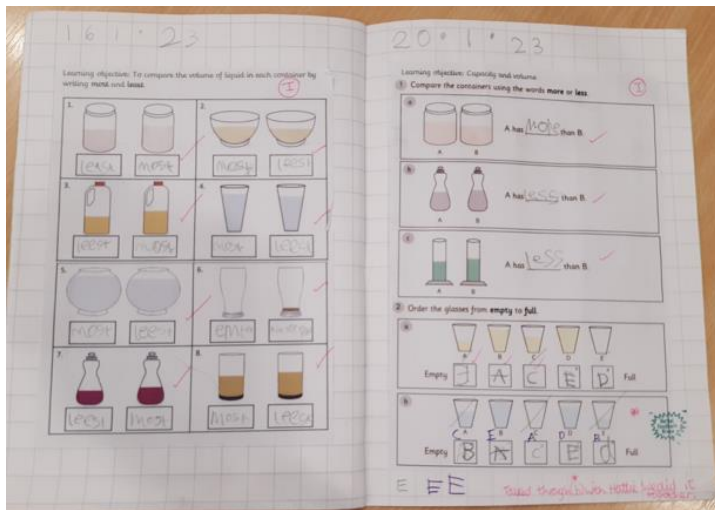 16 1 · 23
Learning objective: To compare the volume of liquid in each container by
writing most and least.
I
1.
2.
least
most
most
leest
3.
4.
leest
most
most
leest
5.
6.
most
leest
7.
8.
leest
most
most
leest
20 · 1 · 23
Learning objective: Capacity and volume
I
1 Compare the containers using the words more or less.
a
A has more than B.
A B
b
A has less than B.
A B
c
A has less than B.
A B
2 Order the glasses from empty to full.
a
A B C D E
Empty A C E D Full
b
C E A D B
A B C D E
Empty B A C E d Full
E E E